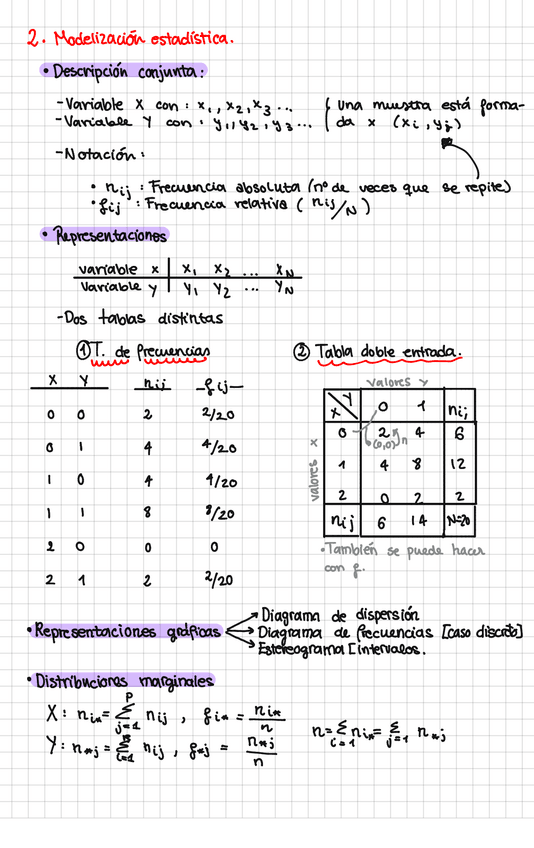 2. Modelización estadística.
• Descripción conjunta:
- Variable X con: x₁, x₂, x₃ ... { Una muestra está forma-
- Variable Y con: y₁, y₂, y₃ ... { da x (xᵢ, yⱼ)
- Notación:
• nij : Frecuencia absoluta (nº de veces que se repite)
• fij : Frecuencia relativa (nij/N)
• Representaciones
variable x | x₁ x₂ ... xN
variable y | y₁ y₂ ... yN
- Dos tablas distintas
① T. de frecuencias
X Y nij fij
0 0 2 2/20
0 1 4 4/20
1 0 4 4/20
1 1 8 8/20
2 0 0 0
2 1 2 2/20
② Tabla doble entrada.
valores y
valores x
X Y 0 1 ni;
0 2 4 6
(0,0) n
1 4 8 12
2 0 2 2
nij 6 14 N=20
• También se puede hacer
con f.
• Representaciones gráficas
Diagrama de dispersión
Diagrama de frecuencias [caso discreto]
Estereograma [intervalos.
• Distribuciones marginales
X: ni* = Σ(j=1, p) nij , fi* = ni*/n
Y: n*j = Σ(i=1) nij , f*j = n*j/n
n = Σ(i=1) ni* = Σ(j=1) n*j